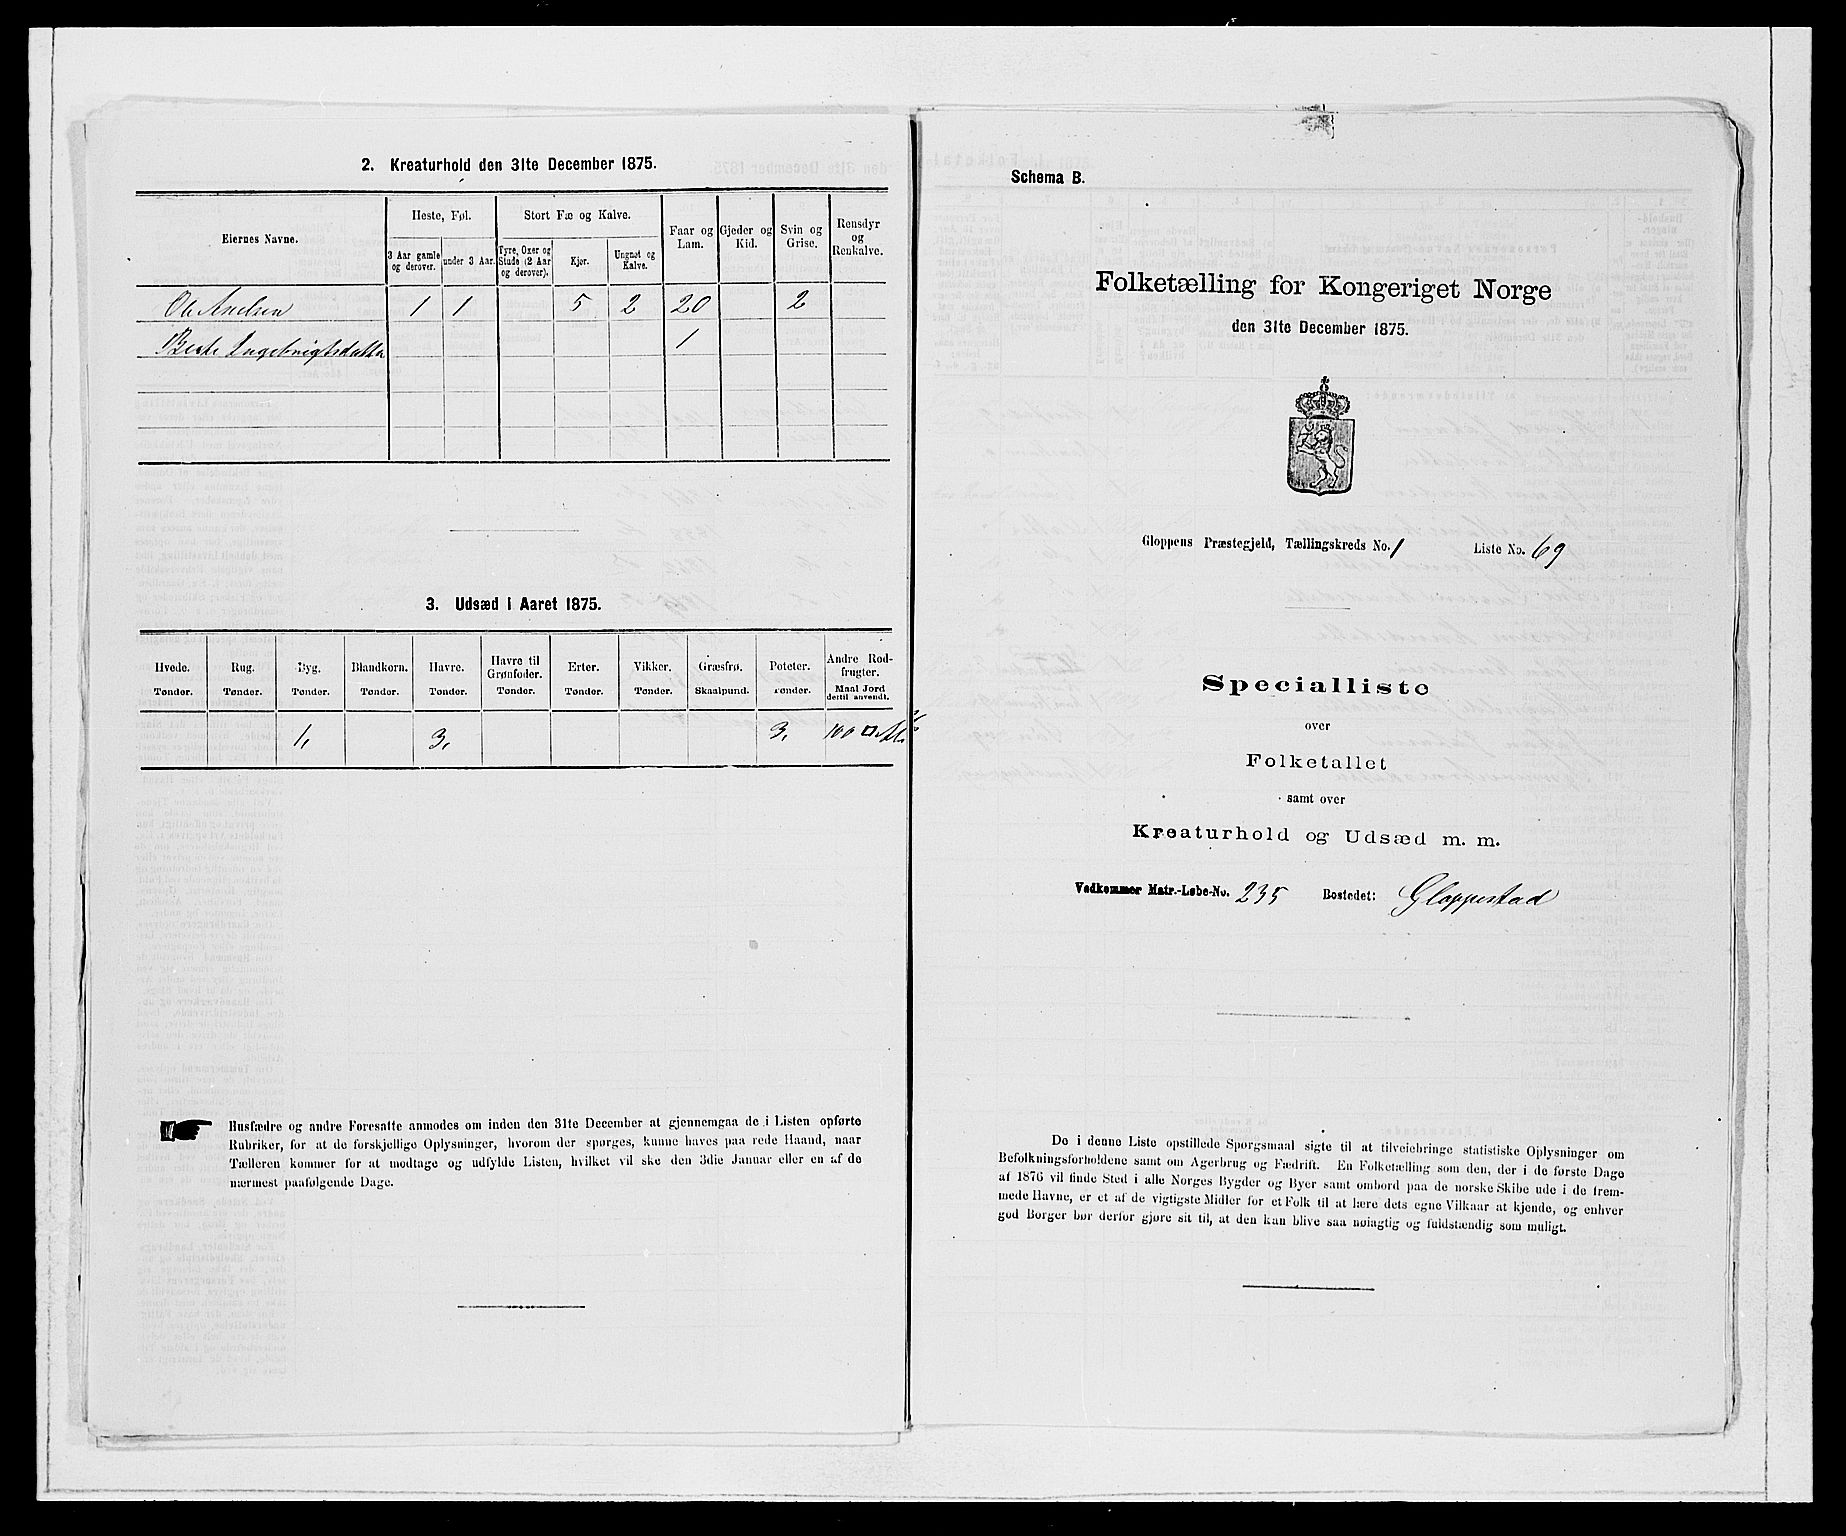 2. Kreaturhold den 31te December 1875.
Eiernes Navne.
Heste, Føl.
3 Aar gamle og derover.
under 3 Aar.
Stort Fæ og Kalve.
Tyre, Oxer og Stude (2 Aar og derover).
Kjør.
Ungnøt og Kalve.
Faar og Lam.
Gjeder og Kid.
Svin og Grise.
Rensdyr og Renkalve.
Ole 1 1 5 2 20 2
Ingebrigtsdatter 1
3. Udsæd i Aaret 1875.
Hvede. Rug. Byg. Blandkorn. Havre. Havre til Grønfoder. Erter. Vikker. Græsfrø. Poteter. Andre Rodfrugter.
Tønder. Tønder. Tønder. Tønder. Tønder. Tønder. Tønder. Tønder. Skaalpund. Tønder. Maal Jord dertil anvendt.
1, 3, 3, 100 □ Al.
Husfædre og andre Foresatte anmodes om inden den 31te December at gjennemgaa de i Listen opførte
Rubriker, for at de forskjellige Oplysninger, hvorom der spørges, kunne haves paa rede Haand, naar
Tælleren kommer for at modtage og udfylde Listen, hvilket vil ske den 3die Januar eller en af de
nærmest paafølgende Dage.
Schema B.
Folketælling for Kongeriget Norge
den 31te December 1875.
Gloppens Præstegjeld, Tællingskreds No. 1 Liste No. 69
Specialliste
over
Folketallet
samt over
Kreaturhold og Udsæd m. m.
Vedkommer Matr.-Løbe-No. 235 Bostedet: Gloppestad
De i denne Liste opstillede Spørgsmaal sigte til at tilveiebringe statistiske Oplysninger om
Befolkningsforholdene samt om Agerbrug og Fædrift. En Folketælling som den, der i de første Dage
af 1876 vil finde Sted i alle Norges Bygder og Byer samt ombord paa de norske Skibe ude i de frem-
mede Havne, er et af de vigtigste Midler for et Folk til at lære dets egne Vilkaar at kjende, og enhver
god Borger bør derfor gjøre sit til, at den kan blive saa nøiagtig og fuldstændig som muligt.